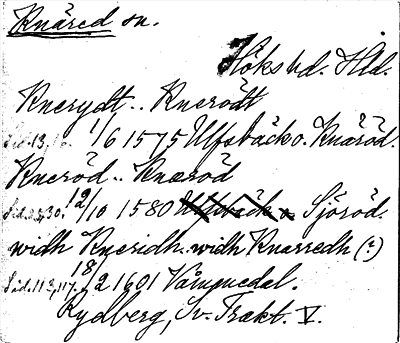 Knäred sn.
Höks hd. Hld.
Knerydt .. Knerödt
Sid. 13, 1/6 1575 Ulfsbäck o. Knäröd.
Kneröd .. Knæröd
Sid. 30, 12/10 1580 Sjöröd.
widh Kneridh. widh Knarredh (?)
Sid. 113, 117. 18/2 1601 Vånnedal.
Rydberg, Sv. Trakt. V.